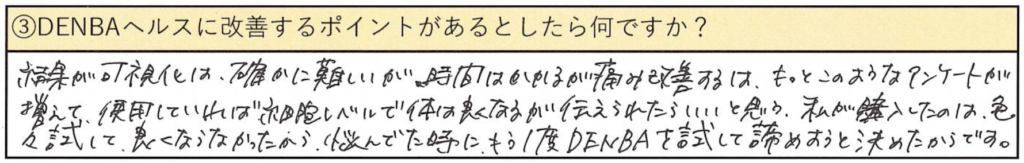 ③DENBAヘルスに改善するポイントがあるとしたら何ですか？
結果が可視化は、確かに難しいが、時間はかかるが痛み改善するは、もっとこのようなアンケートが
増えて、使用していれば細胞レベルで体は良くなるが伝えられたらいいと思う。私が購入したのは、色
々試して、良くならなかったから、悩んでた時に、もう1度DENBAを試して諦めようと決めたからです。